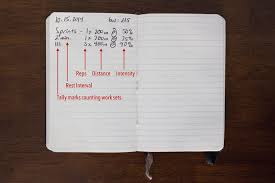 10.15.2014 bw: 215
Sprints - 1 x 200m @ 50%
2 min. 1 x 200m @ 75%
III 3 x 400m @ 90%
Reps Distance Intensity
Rest Interval
Tally marks counting work sets.